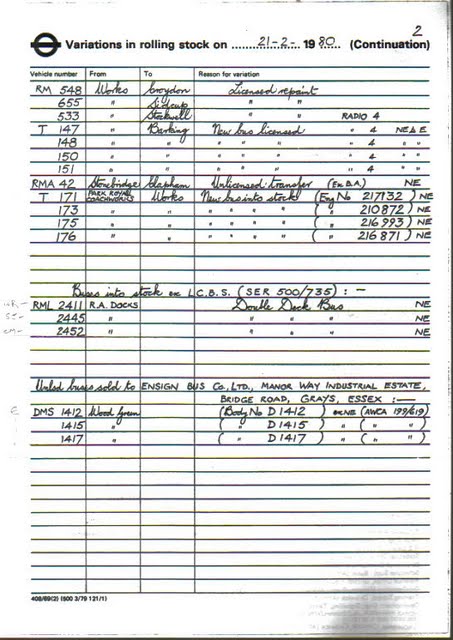 2
Variations in rolling stock on 21-2- 1980 (Continuation)
Vehicle number From To Reason for variation
RM 548 Works Croydon Licensed repaint
655 " Sidcup " "
533 " Stockwell " " RADIO 4
T 147 " Barking New bus licensed " 4 NE & E
148 " " " " " " 4 " "
150 " " " " " " 4 " "
151 " " " " " " 4 " "
RMA 42 Stonebridge Clapham Unlicensed transfer (Ex B.A.) NE
T 171 PARK ROYAL COACHWORKS Works New bus into stock (Eng No 217132) NE
173 " " " " " " ( " 210872) NE
175 " " " " " " ( " 216993) NE
176 " " " " " " ( " 216871) NE
Buses into stock ex L.C.B.S. (SER 500/735) :-
RML 2411 R.A. DOCKS Double Deck Bus NE
2445 " " " " NE
2452 " " " " NE
buses sold to ENSIGN BUS Co., LTD., MANOR WAY INDUSTRIAL ESTATE,
BRIDGE ROAD, GRAYS, ESSEX :-
DMS 1412 Wood Green (Body No D1412) ex NE (AWCA 199/619)
1415 " ( " D1415) " ( " " )
1417 " ( " D1417) " ( " " )
408/69(2) (500 3/79 121/1)